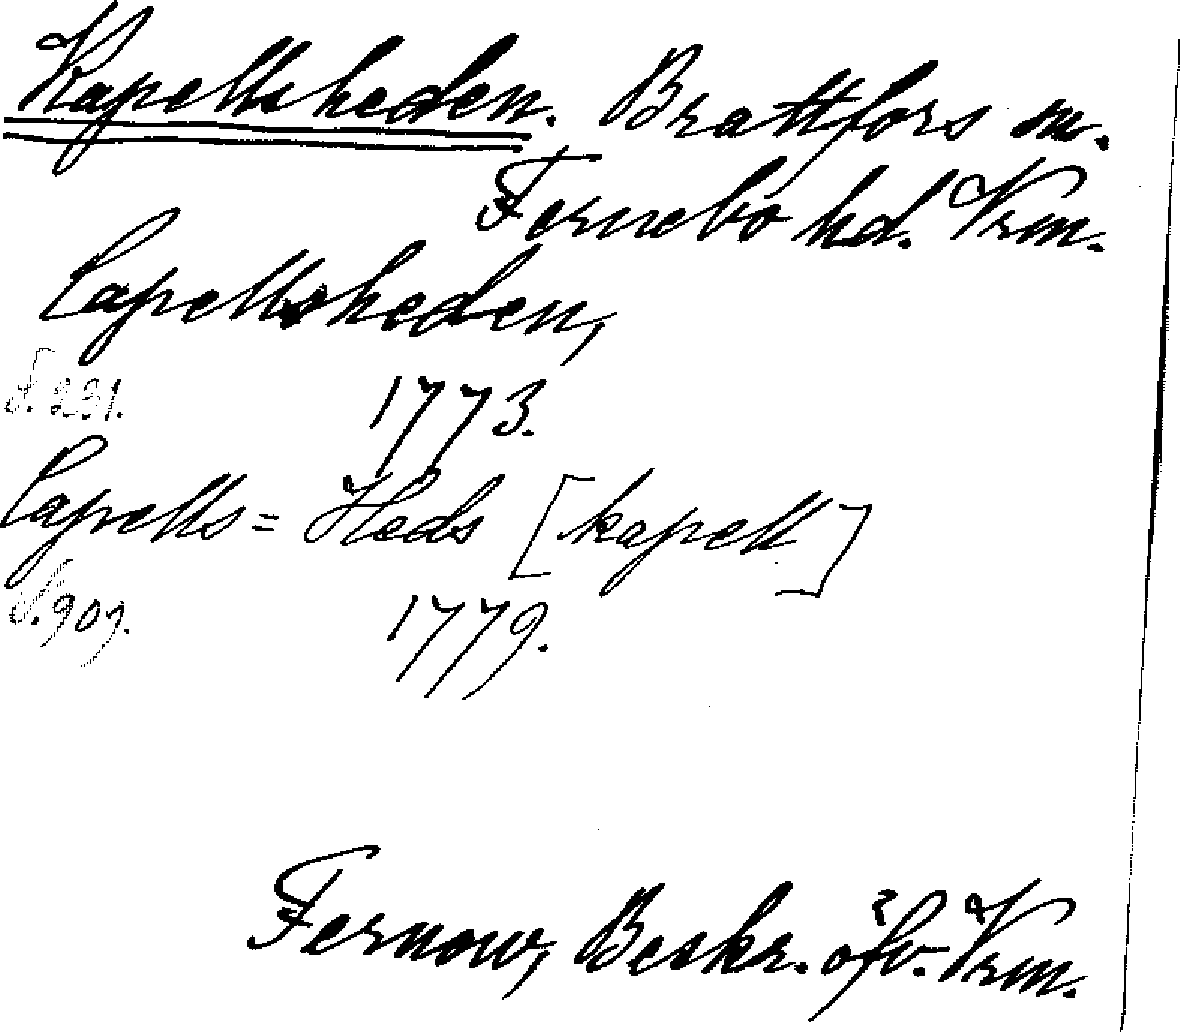 Kapellsheden. Brattfors sn.
Fernebo hd. Vrm.
Capellsheden,
S. 231. 1773.
Capells= Heds [kapell]
S. 907. 1779.
Fernow, Beskr. öfv. Vrm.